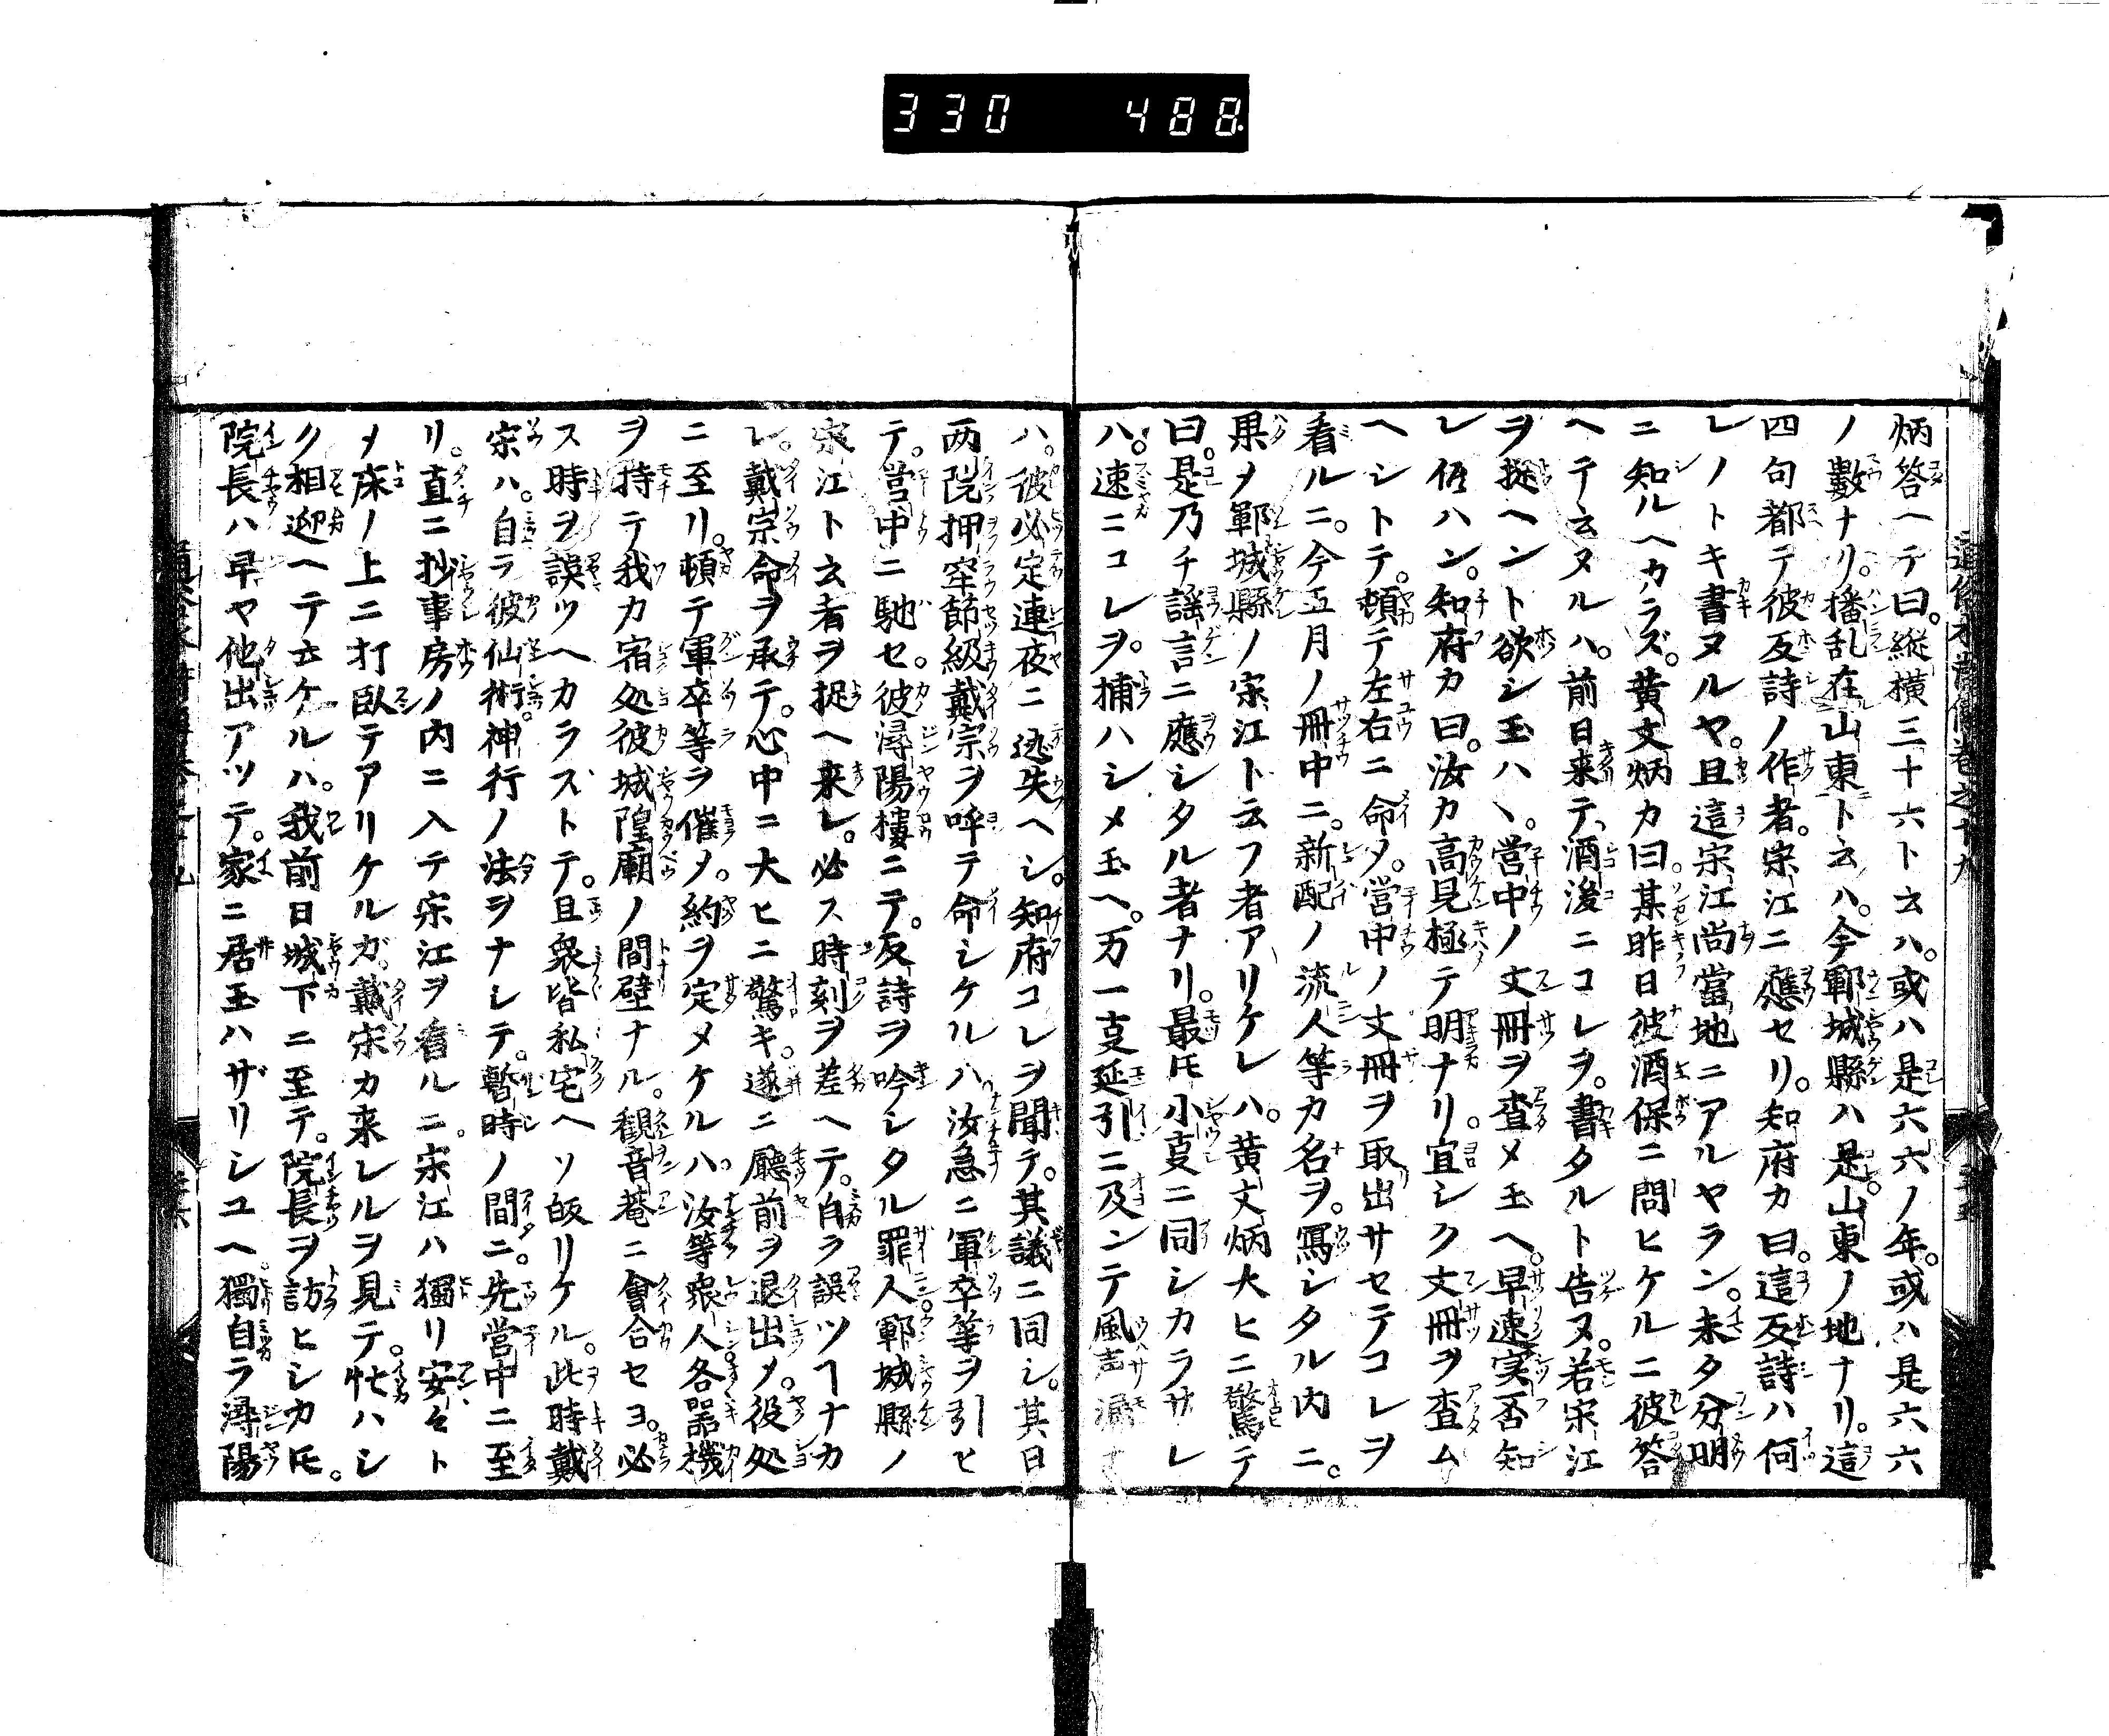 330 488
炳答ヘテ曰。縦横三十六ト云ハ。或ハ是六六ノ年。或ハ是六六
ノ數ナリ。播乱在山東ト云ハ。今鄆城縣ハ是山東ノ地ナリ。這
四句都テ彼反詩ノ作者。宋江ニ應セリ。知府カ曰。這反詩ハ何
レノトキ書ヌルヤ。且這宋江尚當地ニアルヤラン。未タ分明
ニ知ルヘカラズ。黄文炳カ曰。某昨日彼酒保ニ問ヒケルニ彼答
ヘテ云ヌルハ。前日来テ、酒後ニコレヲ。書タルト告ヌ。若宋江
ヲ捉ヘント欲シ玉ハヽ。営中ノ文冊ヲ査メ玉ヘ。早速実否知
レ侄ハン。知府カ曰。汝カ高見極テ明ナリ。宜シク文冊ヲ査ム
ヘシトテ。頓テ左右ニ命メ。営中ノ文冊ヲ取出サセテコレヲ
看ルニ。今五月ノ冊中ニ。新配ノ流人等カ名ヲ。寫シタル内ニ。
果メ鄆城縣ノ宋江ト云フ者アリケレハ。黄文炳大ヒニ驚テ
曰。是乃チ謡言ニ應シタル者ナリ。最𪜈小叓ニ同シカラサレ
ハ。速ニコレヲ。捕ハシメ玉ヘ。万一叓延引ニ及ンテ風声漏
ハ。彼必定連夜ニ迯失ヘシ。知府コレヲ聞テ。其議ニ同シ。其日
両院押牢節級戴宗ヲ呼テ命シケルハ汝急ニ軍卒等ヲ引ヒ
テ。営中ニ馳セ。彼潯陽樓ニテ。反詩ヲ吟シタル罪人鄆城縣ノ
宋江ト云者ヲ捉ヘ来レ。必ス時刻ヲ差ヘテ。自ラ誤ツヿナカ
レ。戴宗命ヲ承テ。心中ニ大ヒニ驚キ。遂ニ廳前ヲ退出メ。役処
ニ至リ。頓テ軍卒等ヲ催メ。約ヲ定メケルハ。汝等衆人各器機
ヲ持テ我カ宿処彼城隍廟ノ間壁ナル。観音菴ニ會合セヨ。必
ス時ヲ誤ツヘカラストテ。且衆皆私宅ヘソ皈リケル。此時戴
宗ハ。自ラ彼仙術。神行ノ法ヲナシテ。暫時ノ間ニ。先営中ニ至
リ。直ニ抄事房ノ内ニ入テ宋江ヲ看ルニ。宋江ハ獨リ安々ト
メ床ノ上ニ打臥テアリケルガ。戴宗カ来レルヲ見テ。忙ハシ
ク相迎ヘテ云ケルハ。我前日城下ニ至テ。院長ヲ訪ヒシカ𪜈。
院長ハ早ヤ他出アツテ。家ニ居玉ハザリシユヘ。獨自ラ潯陽